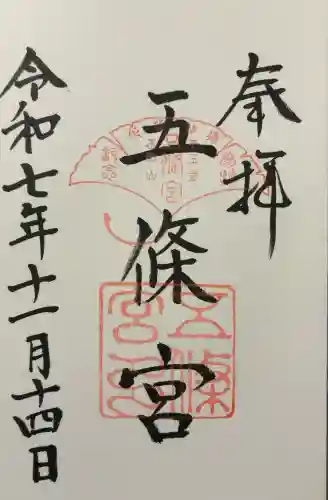 奉拝
五條宮
五條宮印
令和七年十一月十四日